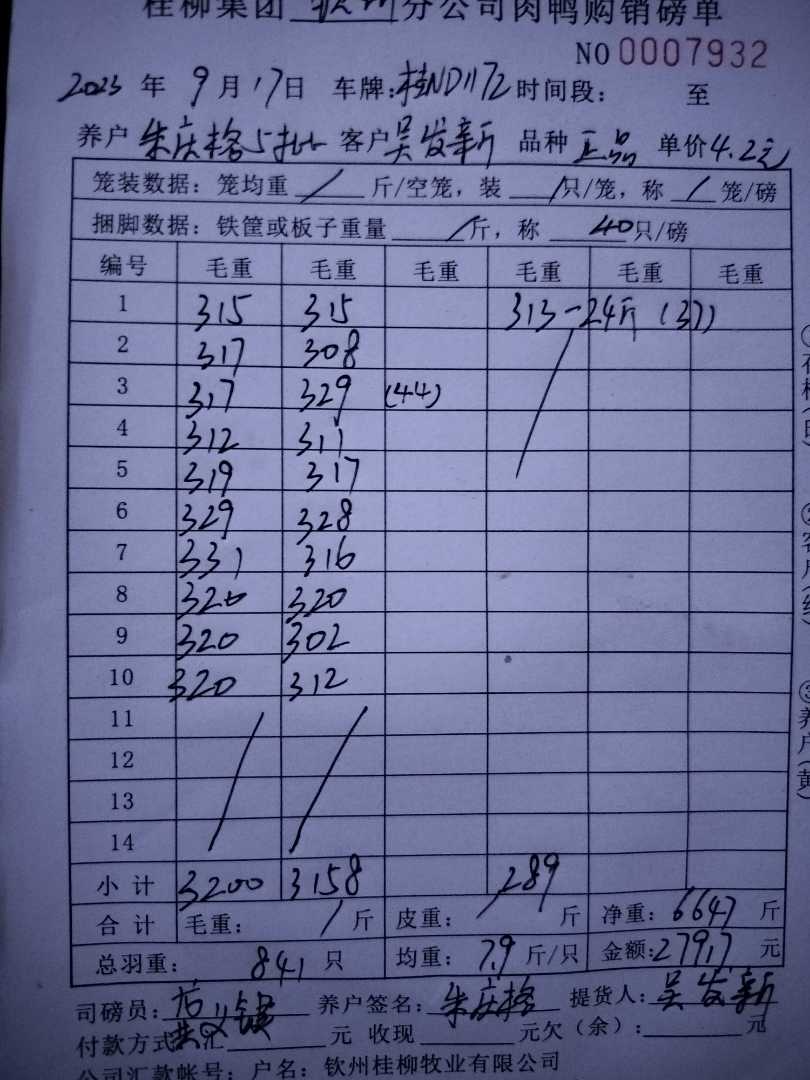 桂柳集团 钦州 分公司肉鸭购销磅单
NO 0007932
2023 年 9 月 17 日 车牌:桂ND1172 时间段: 至
养户 朱庆格5批 客户 吴发新 品种 正品 单价 4.2元
笼装数据: 笼均重 / 斤/空笼, 装 / 只/笼, 称 / 笼/磅
捆脚数据: 铁筐或板子重量 / 斤, 称 40 只/磅
编号 毛重 毛重 毛重 毛重 毛重 毛重
1 315 315 313-24斤 (37)
2 317 308
3 317 329 (44)
4 312 311
5 319 317
6 329 328
7 331 316
8 320 320
9 320 302
10 320 312
11
12
13
14
小计 3200 3158 289
合计 毛重: / 斤 皮重: / 斤 净重: 6647 斤
总羽重: 841 只 均重: 7.9 斤/只 金额: 27917 元
司磅员: 养户签名: 朱庆格 提货人: 吴发新
付款方式: 汇 元 收现 元欠(余): 元
公司汇款帐号: 户名: 钦州桂柳牧业有限公司